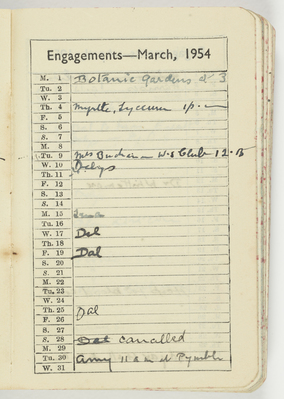 Engagements—March, 1954
M. 1 Botanic Gardens at 3
Tu. 2
W. 3
Th. 4 Myrtle, Lyceum 1 p.
F. 5
S. 6
S. 7
M. 8
Tu. 9 Mrs W.S Club 12.15
W. 10 Delys
Th. 11
F. 12
S. 13
S. 14
M. 15
Tu. 16
W. 17 Dal
Th. 18
F. 19 Dal
S. 20
S. 21
M. 22
Tu. 23
W. 24
Th. 25 Dal
F. 26
S. 27
S. 28 Dal cancalled
M. 29
Tu. 30 Amy 11 a m at Pymble
W. 31